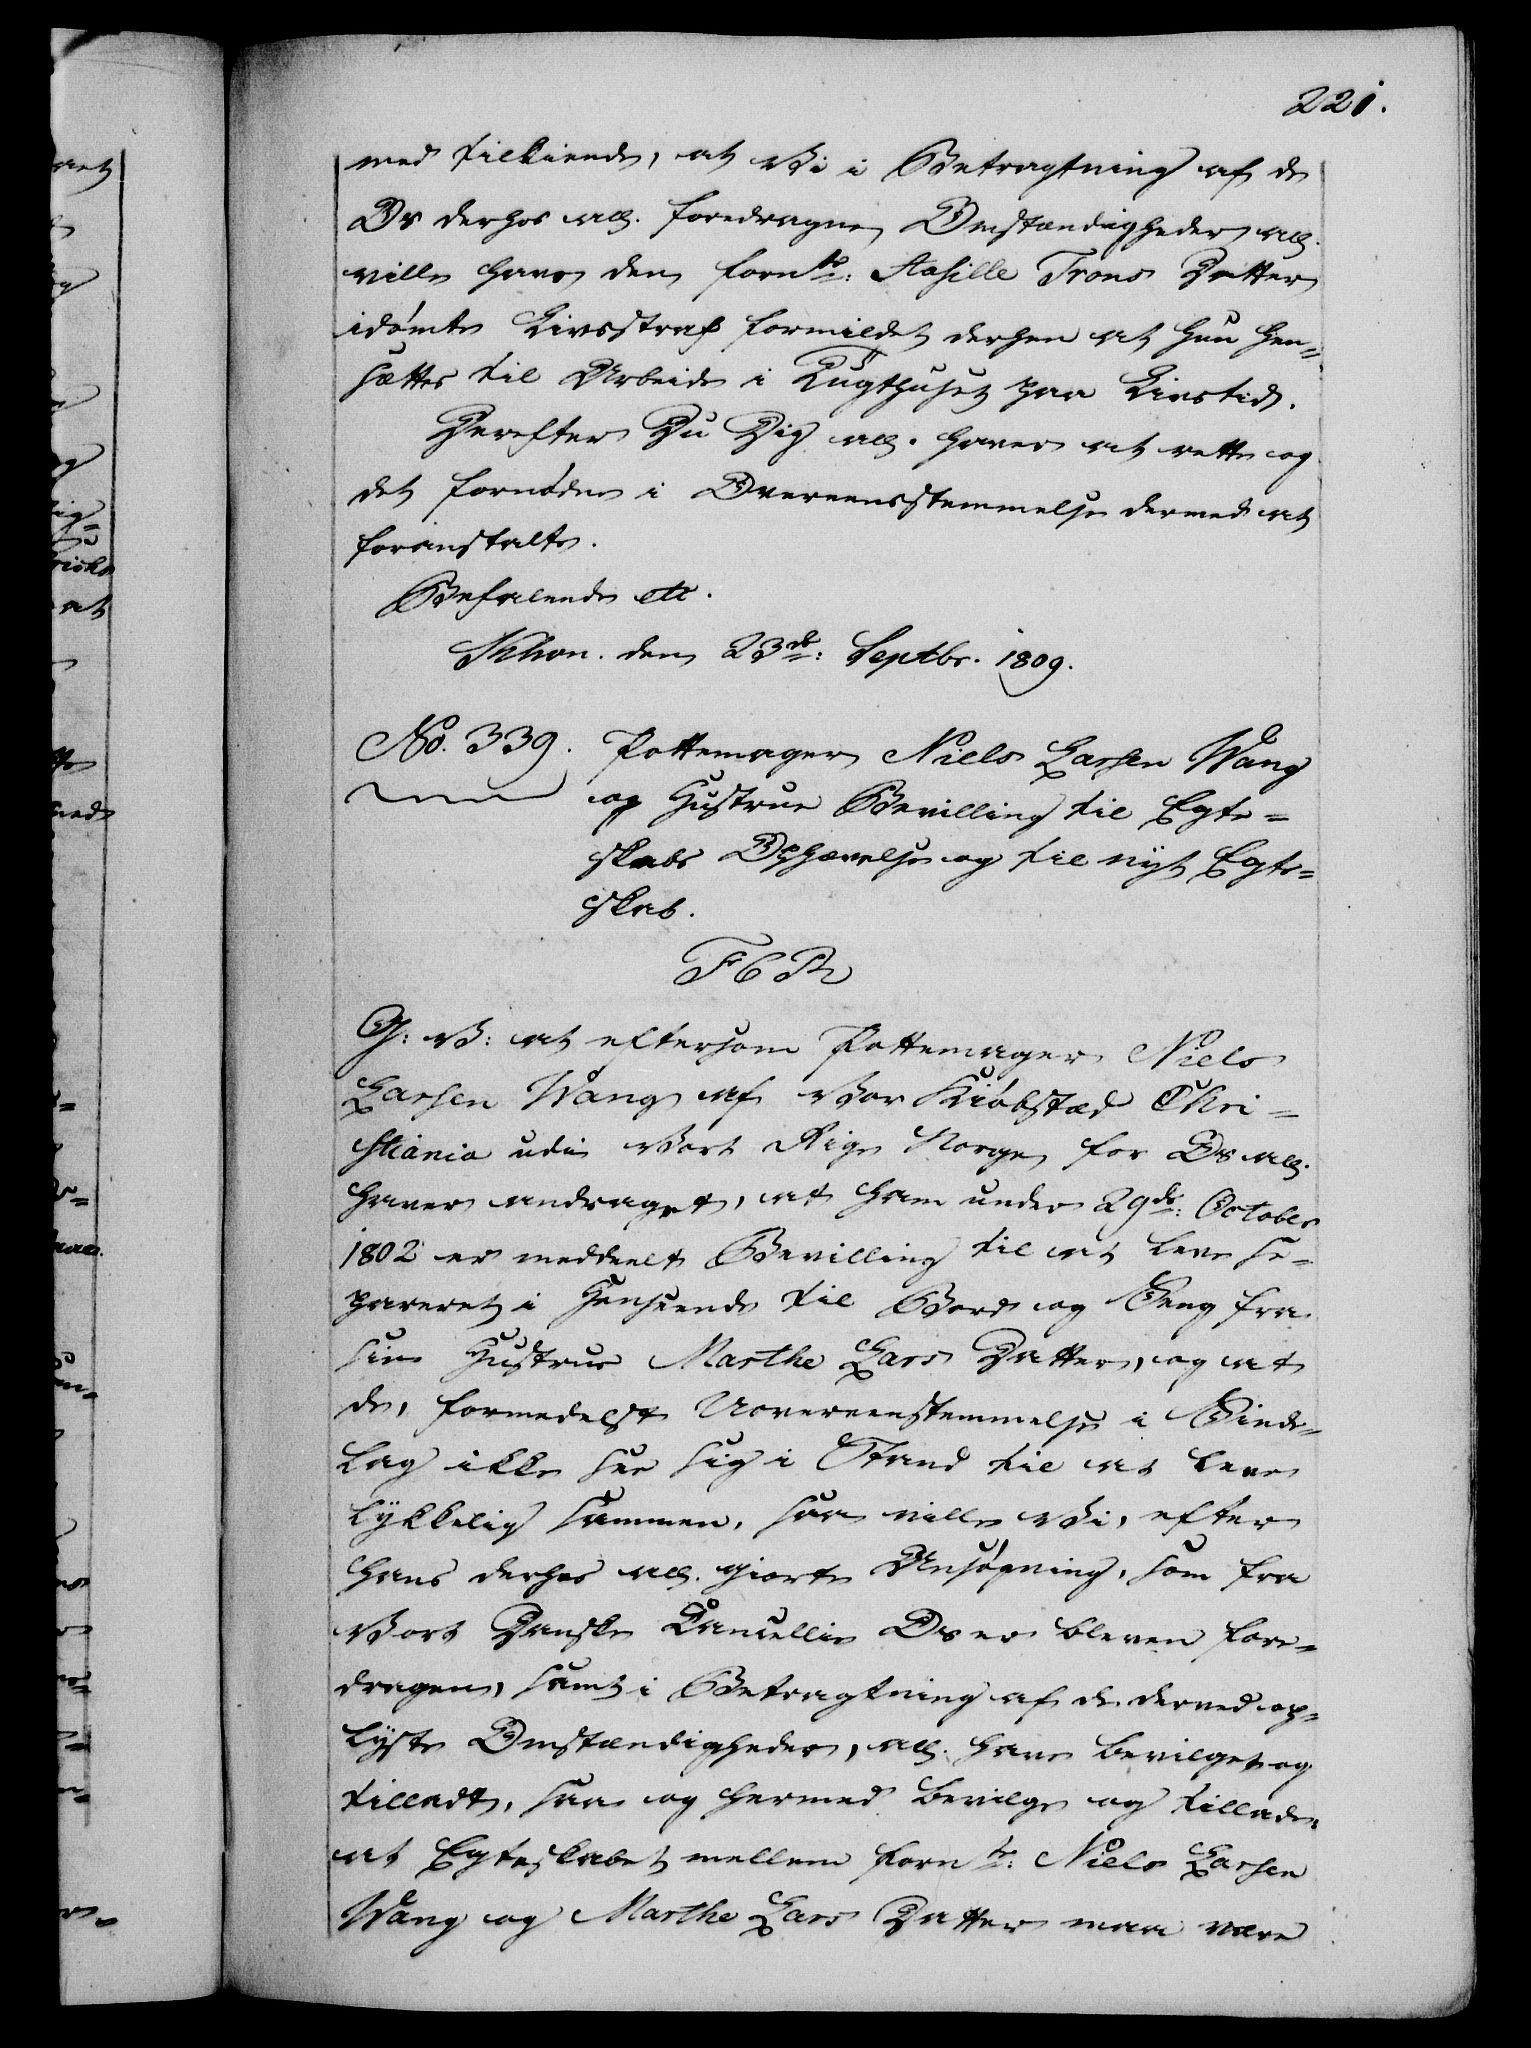 221.
med tilkiende, at Vi i Betragtning af de
Os derhos all. foredragne Omstændigheder all.
ville have den fornte: Aasille Trons Datter
idømte Livsstraf formildet derhen at hun hen-
sættes til Arbeide i Tugthuset paa Livstid.
Derefter Du Dig all. haver at rette og
det fornødne i Overeensstemmelse dermed at
foranstalte.
Befalende etc.
Khavn. den 23de: Septbr. 1809.
No. 339. Pottemager Niels Larsen Wang
og Hustrue Bevilling til Egte-
skabs Ophævelse og til nyt Egte-
skab.
F 6 R
G: V: at eftersom Pottemager Niels
Larsen Wang af Vor Kiøbstæd Chri-
stiania udi Vort Rige Norge for Os all.
haver andraget, at ham under 29de: October
1802 er meddeelt Bevilling til at leve se-
pareret i Henseende til Bord og Seng fra
sin Hustrue Marthe Lars Datter, og at
de, formedelst Uovereenstemmelse i Sinde-
lag ikke see sig i Stand til at leve
lykkelig sammen, saa ville Vi, efter
hans derhos all. giorte Ansøgning, som fra
Vort Danske Cancellie Os er bleven fore-
dragen, samt i Betragtning af de derved op-
lyste Omstændigheder, all. have bevilget og
tilladt, saa og hermed bevilge og tillade,
at Egteskabet mellem fornte: Niels Larsen
Wang og Marthe Lars Datter maa være